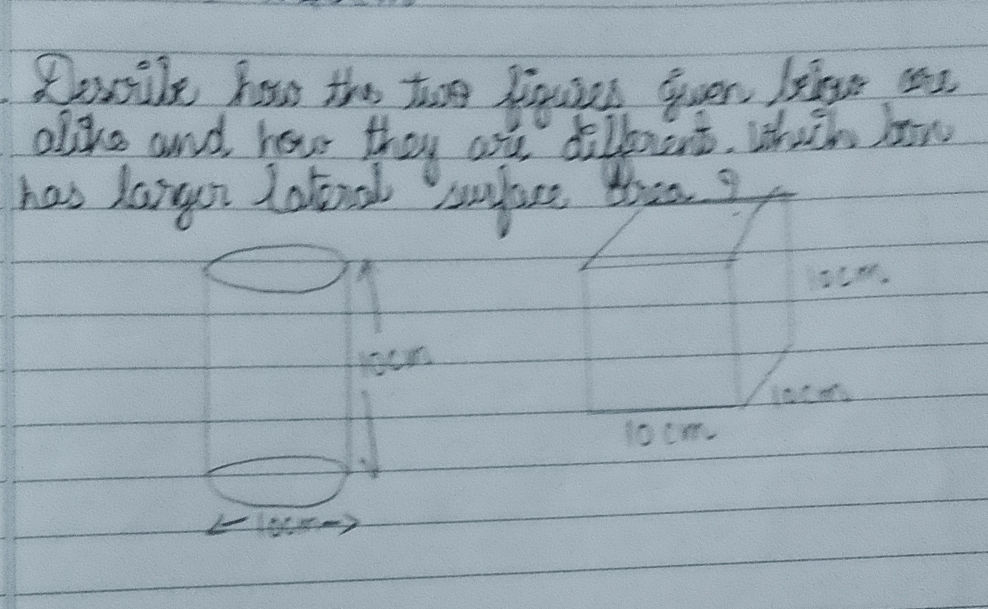 Describe how the two figures given below are
alike and how they are different. Which box
has larger lateral surface Area?
10cm
10cm
10cm
10cm
10cm